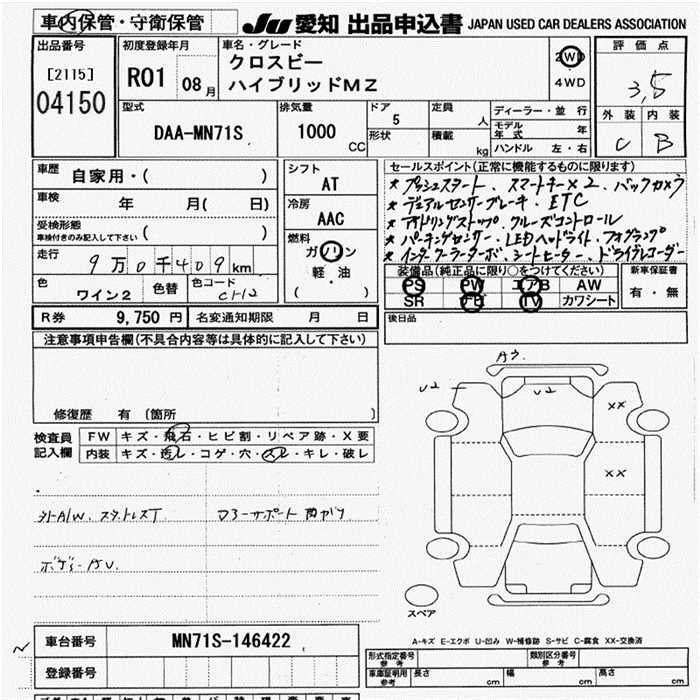 車内保管・守衛保管
JU 愛知 出品申込書 JAPAN USED CAR DEALERS ASSOCIATION
出品番号
[2115]
04150
初度登録年月
R01 08月
車名・グレード
クロスビー
ハイブリッドMZ
2WD
4WD
評価点
3,5
外装 内装
C B
型式
DAA-MN71S
排気量
1000 CC
ドア
5
形状
定員
人
積載
kg
ディーラー・並行
モデル年式 年
ハンドル 左・右
車歴
自家用・( )
車検
年 月( 日)
受検形態
車検付きのみ記入して下さい ( )
走行
9万0千409km
色
ワイン2
色替
色コード
C1-12
シフト
AT
冷房
AAC
燃料
ガソリン
軽・油
( )
セールスポイント(正常に機能するものに限ります)
★プッシュスタート、スマートキー×2、バックカメラ
★デュアルセンサーブレーキ、ETC
★アイドリングストップ、クルーズコントロール
★パーキングセンサー、LEDヘッドライト、フォグランプ
★インタークーラーターボ、シートヒーター、ドライブレコーダー
装備品(純正品に限り○をつけてください)
PS PW エアB AW
SR ナビ TV カワシート
新車保証書
有・無
R券 9,750円
名変通知期限 月 日
後日品
注意事項申告欄(不具合内容等は具体的に記入して下さい)
修復歴 有 〔箇所 〕
検査員記入欄
FW キズ・飛石・ヒビ割・リペア跡・X要
内装 キズ・汚レ・コゲ・穴・スレ・キレ・破レ
社外A/W、スタッドレスT
コアサポート
ボデー AU
Aウ
U2
U2
××
××
スペア
A-キズ E-エクボ U-凹み W-補修跡 S-サビ C-腐食 XX-交換済
車台番号 MN71S-146422
登録番号
形式指定番号
参考
類別区分番号
参考
車庫証明用
参考
長さ cm
幅 cm
高さ cm